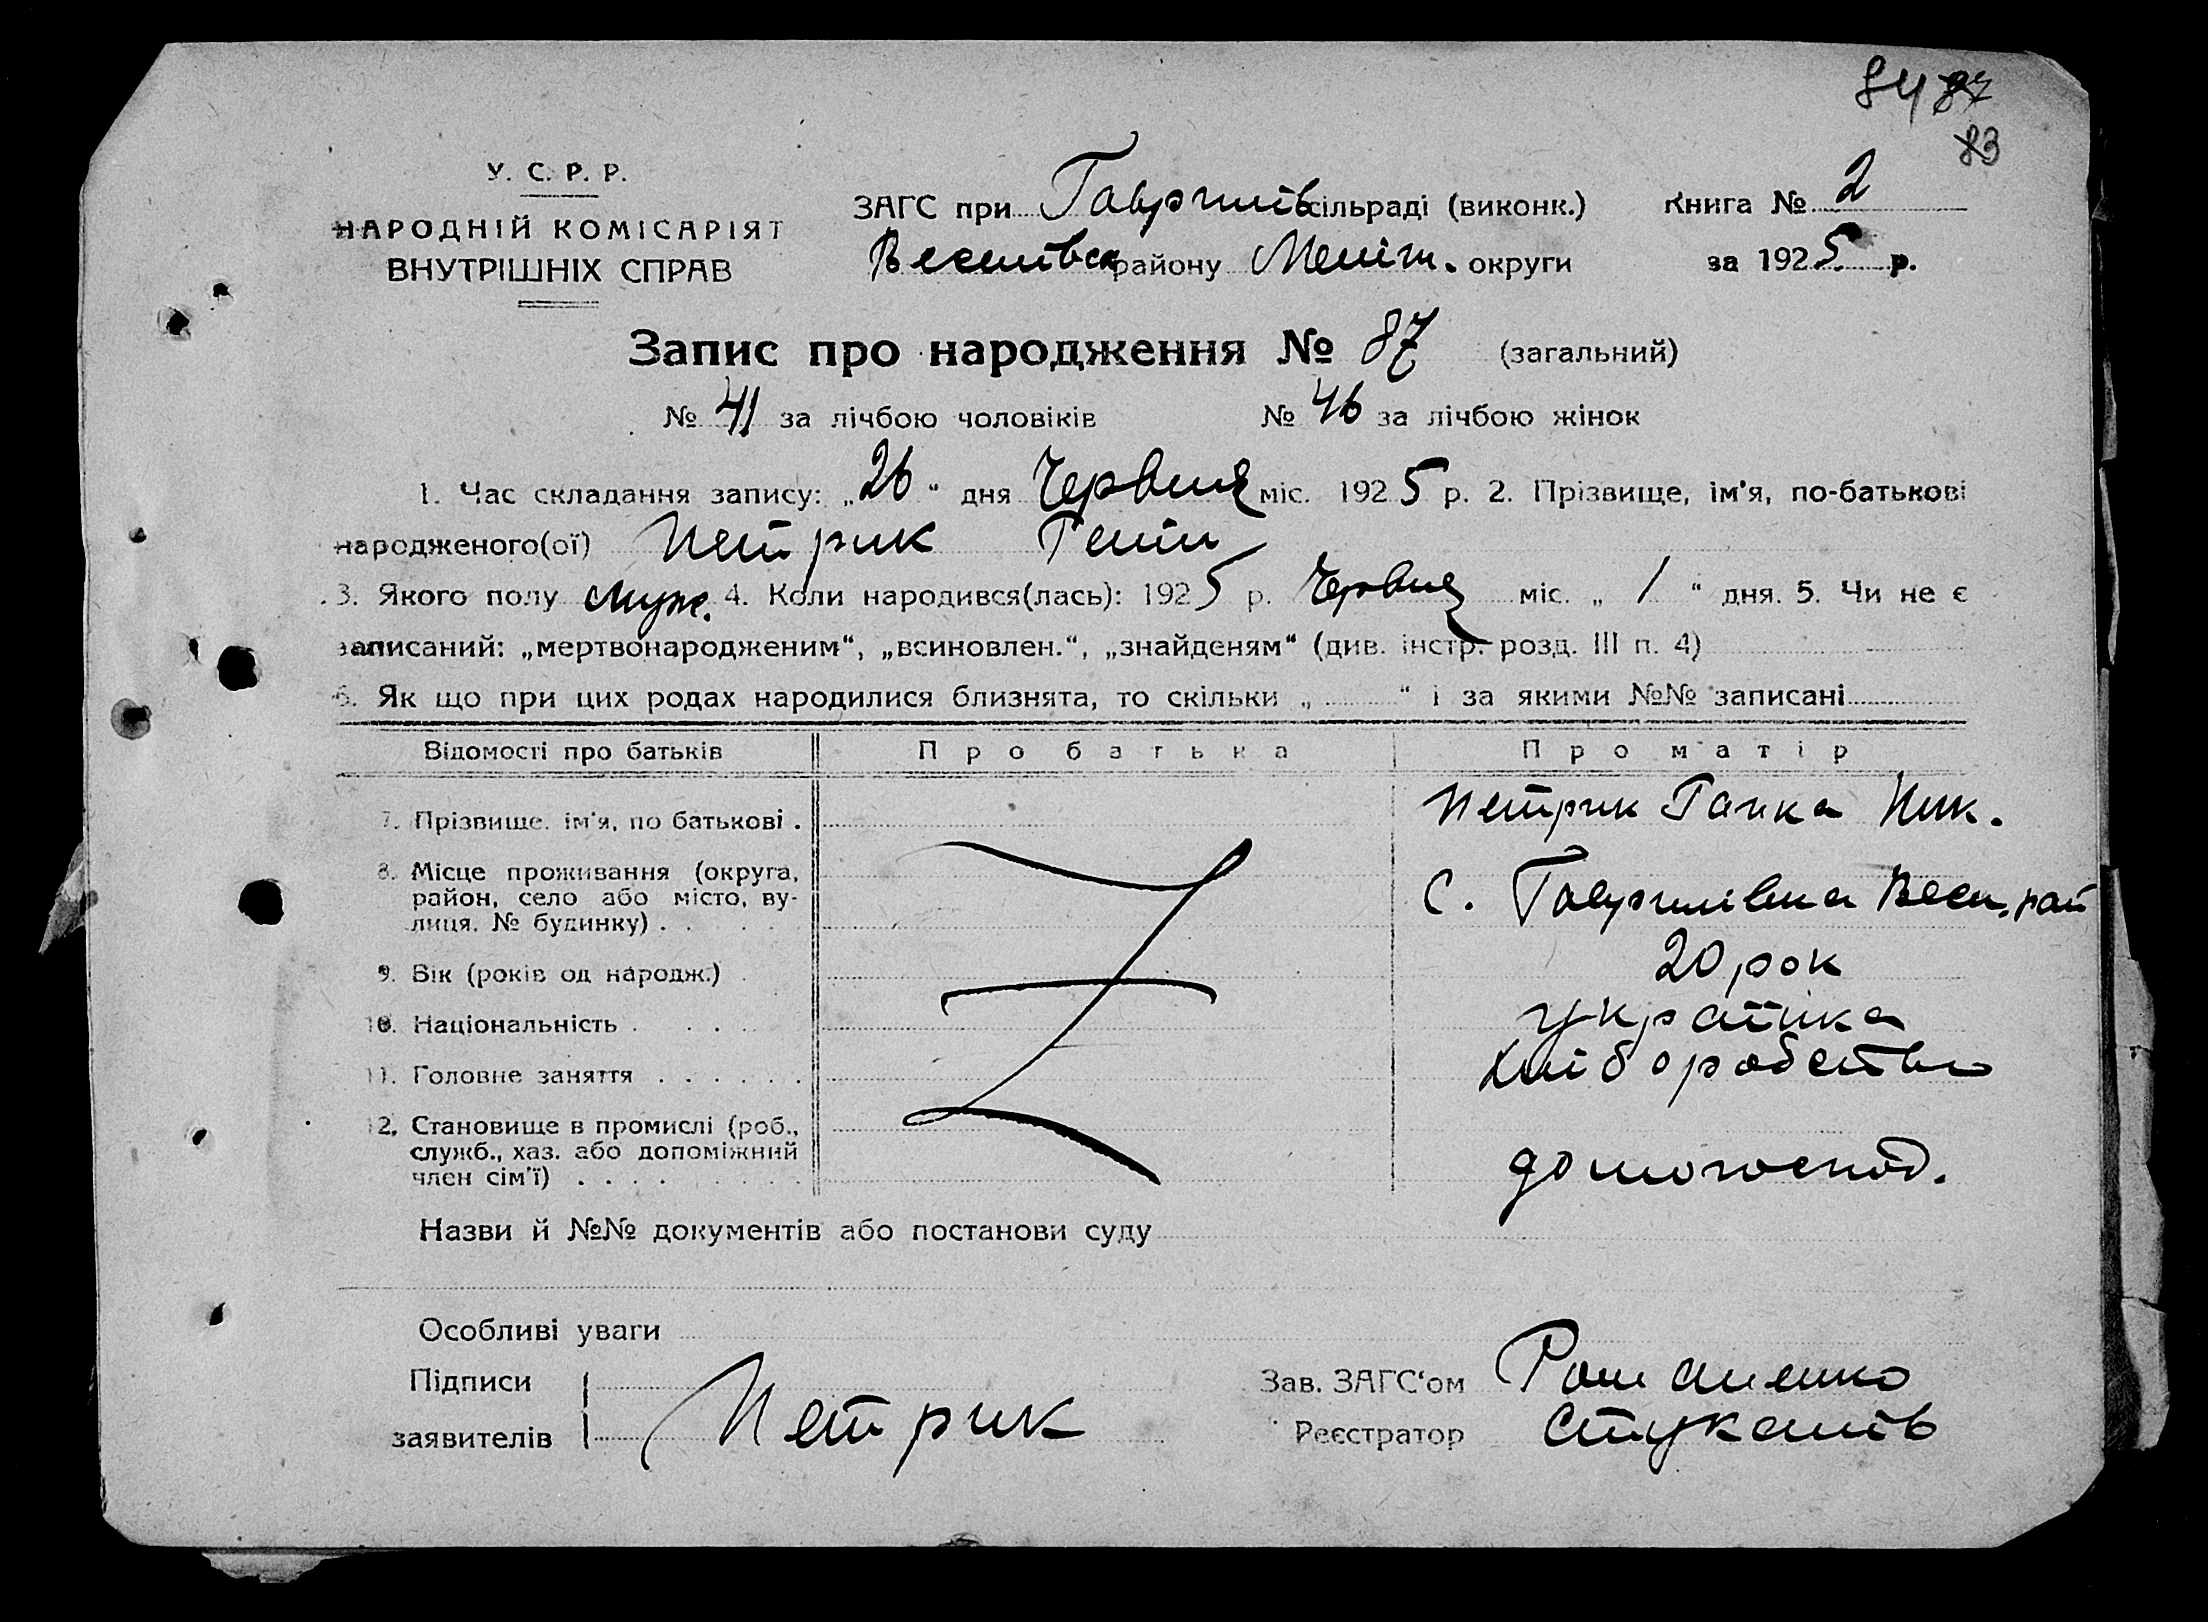 84 87
83
У. С. Р. Р.
НАРОДНІЙ КОМІСАРІЯТ
ВНУТРІШНІХ СПРАВ
ЗАГС при Гаврилів сільраді (виконк.) Книга № 2
Веселівськ району Меліт. округи за 1925 р.
Запис про народження № 87 (загальний)
№ 41 за лічбою чоловіків № 46 за лічбою жінок
1. Час складання запису: „26“ дня Червня міс. 1925 р. 2. Прізвище, ім'я, по-батькові
народженого(ої) Петрик
3. Якого полу муж. 4. Коли народився(лась): 1925 р. Червня міс. „1“ дня. 5. Чи не є
записаний: „мертвонародженим“, „всиновлен.“, „знайденям“ (див. інстр. розд. III п. 4)
6. Як що при цих родах народилися близнята, то скільки „ “ і за якими №№ записані
Відомості про батьків Про батька Про матір
7. Прізвище, ім'я, по батькові . Петрик Ганка Ник.
8. Місце проживання (округа,
район, село або місто, ву-
лиця, № будинку) . . . С. Гаврилівка Весел. рай
9. Вік (років од народж.) . 20 рок
10. Національність . . . . українка
11. Головне заняття . . . . . . хліборобство
12. Становище в промислі (роб.,
служб., хаз. або допоміжний
член сім'ї) . . . . домогоспод.
Назви й №№ документів або постанови суду
Особливі уваги
Підписи
заявителів Петрик
Зав. ЗАГС‘ом Романенко
Реєстратор Стукалів